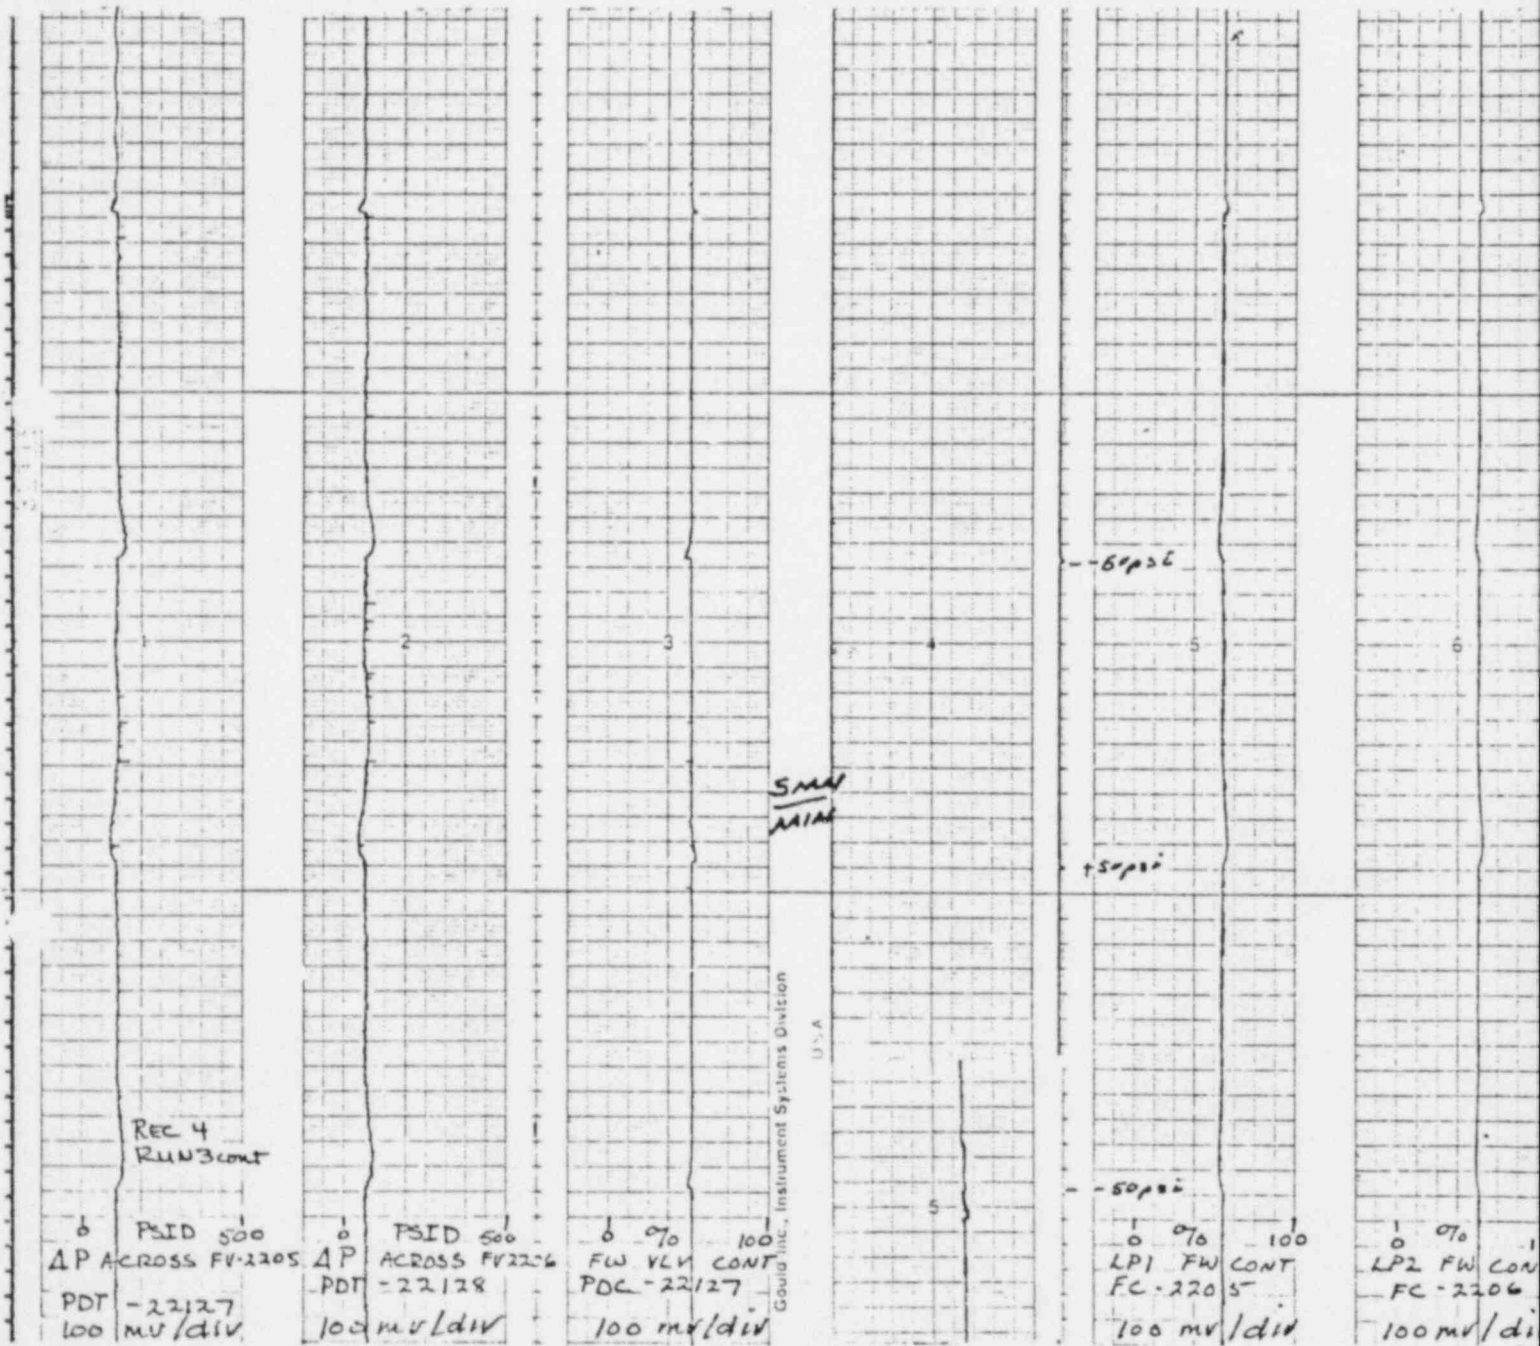 1
2
3
4
5
6
--50psi
+50psi
- -50psi
5 MM/
MIN
Gould Inc., Instrument Systems Division
U.S.A
REC 4
RUN3cont
5
0 PSID 500
ΔP ACROSS FV-2205
PDT -22127
100 mv/div
0 PSID 500
ΔP ACROSS FV2206
PDT -22128
100 mv/div
0 % 100
FW VLV CONT
PDC -22127
100 mv/div
0 % 100
LP1 FW CONT
FC-2205
100 mv/div
0 %
LP2 FW CON
FC-2206
100 mv/di